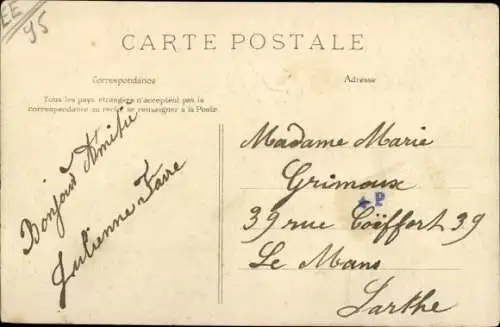 EE
95
CARTE POSTALE
Correspondance
Tous les pays étrangers n'acceptent pas la
correspondance au recto se renseigner à la Poste.
Bonjour d'Amitié
Julienne Favre
Adresse
Madame Marie
Grimoux
P
39 rue Coëffort 39
Le Mans
Sarthe